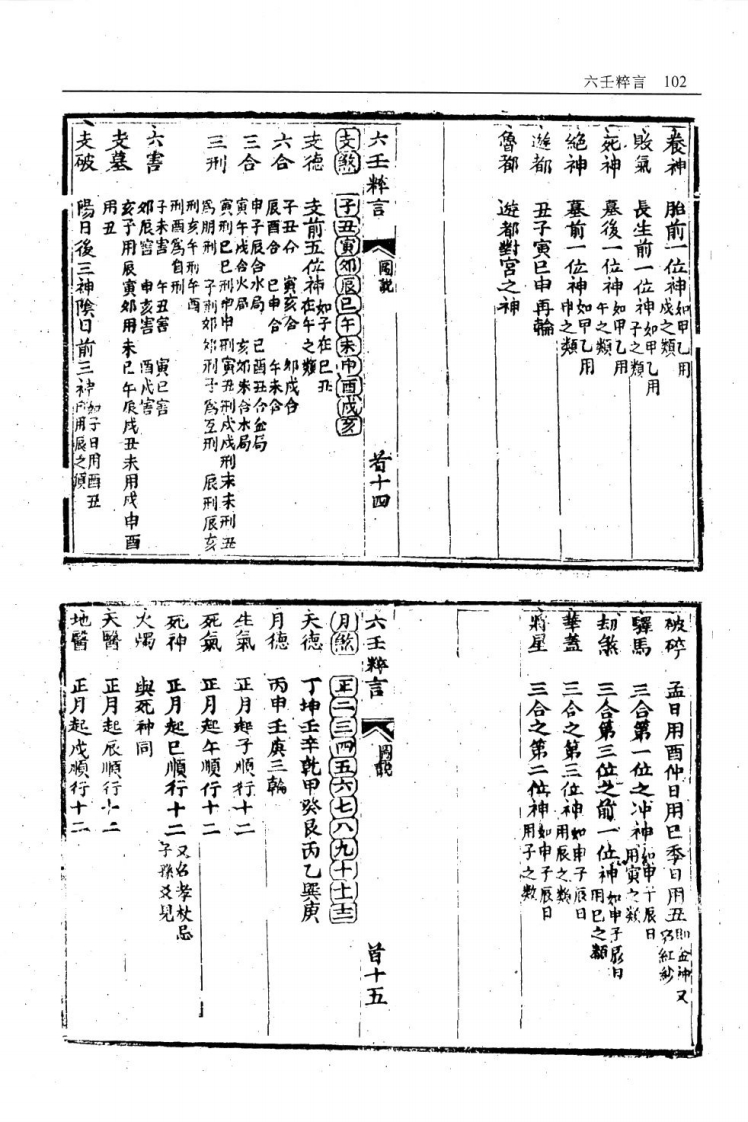 六壬粹言 102
養神 胎前一位神如甲乙用戌之類
敗氣 長生前一位神如甲乙用子之類
死神 墓後一位神如甲乙用午之類
絕神 墓前一位神如甲乙用申之類
遊都 丑子寅巳申再輪
魯都 遊都對宮之神
六壬粹言 圖說 首十四
支煞 子丑寅卯辰巳午未申酉戌亥
支德 支前五位神如子在巳丑在午之類
六合 子丑合 寅亥合 卯戌合 辰酉合 巳申合 午未合
三合 申子辰合水局 巳酉丑合金局 寅午戌合火局 亥卯未合木局
三刑 寅刑巳巳刑申申刑寅丑刑戌戌刑未未刑丑為朋刑 子刑卯卯刑子為互刑 辰刑辰亥刑亥午刑午酉刑酉為自刑
六害 子未害 午丑害 寅巳害 卯辰害 申亥害 酉戌害
支墓 亥子用辰寅卯用未巳午用戌丑未用戌申酉用丑
支破 陽日後三神陰日前三神如子日用酉丑日用辰之類
破碎 孟日用酉仲日用巳季日用丑即金神又名紅紗
驛馬 三合第一位之冲神如申子辰日用寅之類
劫煞 三合第三位之前一位神如申子辰日用巳之類
華蓋 三合之第三位神如申子辰日用辰之類
將星 三合之第二位神如申子辰日用子之類
六壬粹言 圖說 首十五
月煞 正二三四五六七八九十十一十二
天德 丁坤壬辛乾甲癸艮丙乙巽庚
月德 丙甲壬庚三輪
生氣 正月起子順行十二
死氣 正月起午順行十二
死神 正月起巳順行十二又名孝杖忌子孫爻見
火燭 與死神同
天醫 正月起辰順行十二
地醫 正月起戌順行十二